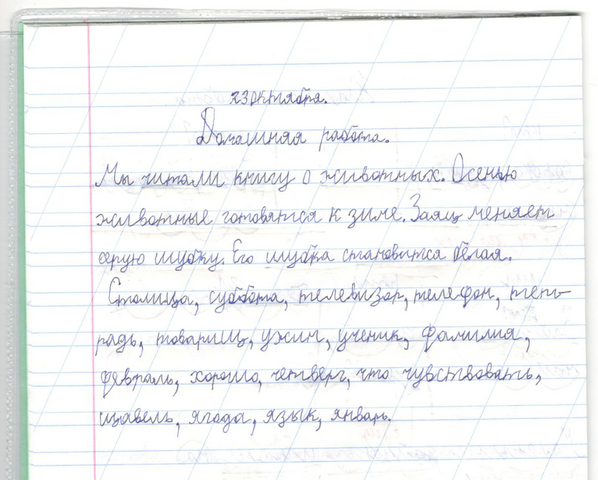 23 октября.
Домашняя работа.
Мы читали книгу о животных. Осенью
животные готовятся к зиме. Заяц меняет
серую шубку. Его шубка становится белая.
Столица, суббота, телевизор, телефон, тет-
радь, товарищ, ужин, ученик, фамилия,
февраль, хорошо, четверг, что чувствовать,
щавель, ягода, язык, январь.